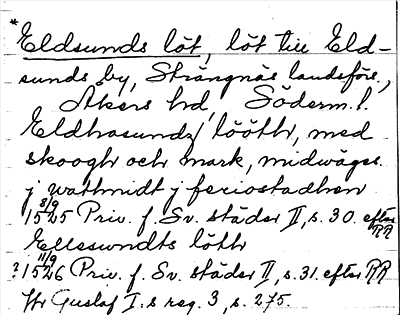 * Eldsunds löt, löt till Eld-
sunds by, Strängnäs landsförs.,
Åkers hd, Söderm. l.
Eldhasundz löóth, med
skoogh och mark, midwäges
j wathnidt j feriostadhen
8/9 1525 Priv. f. Sv. städer II, s. 30. efter RR
Ellesundts löth
?11/9 1526 Priv. f. Sv. städer II, s. 31. efter RR
Gustaf I:s reg. 3, s. 275.